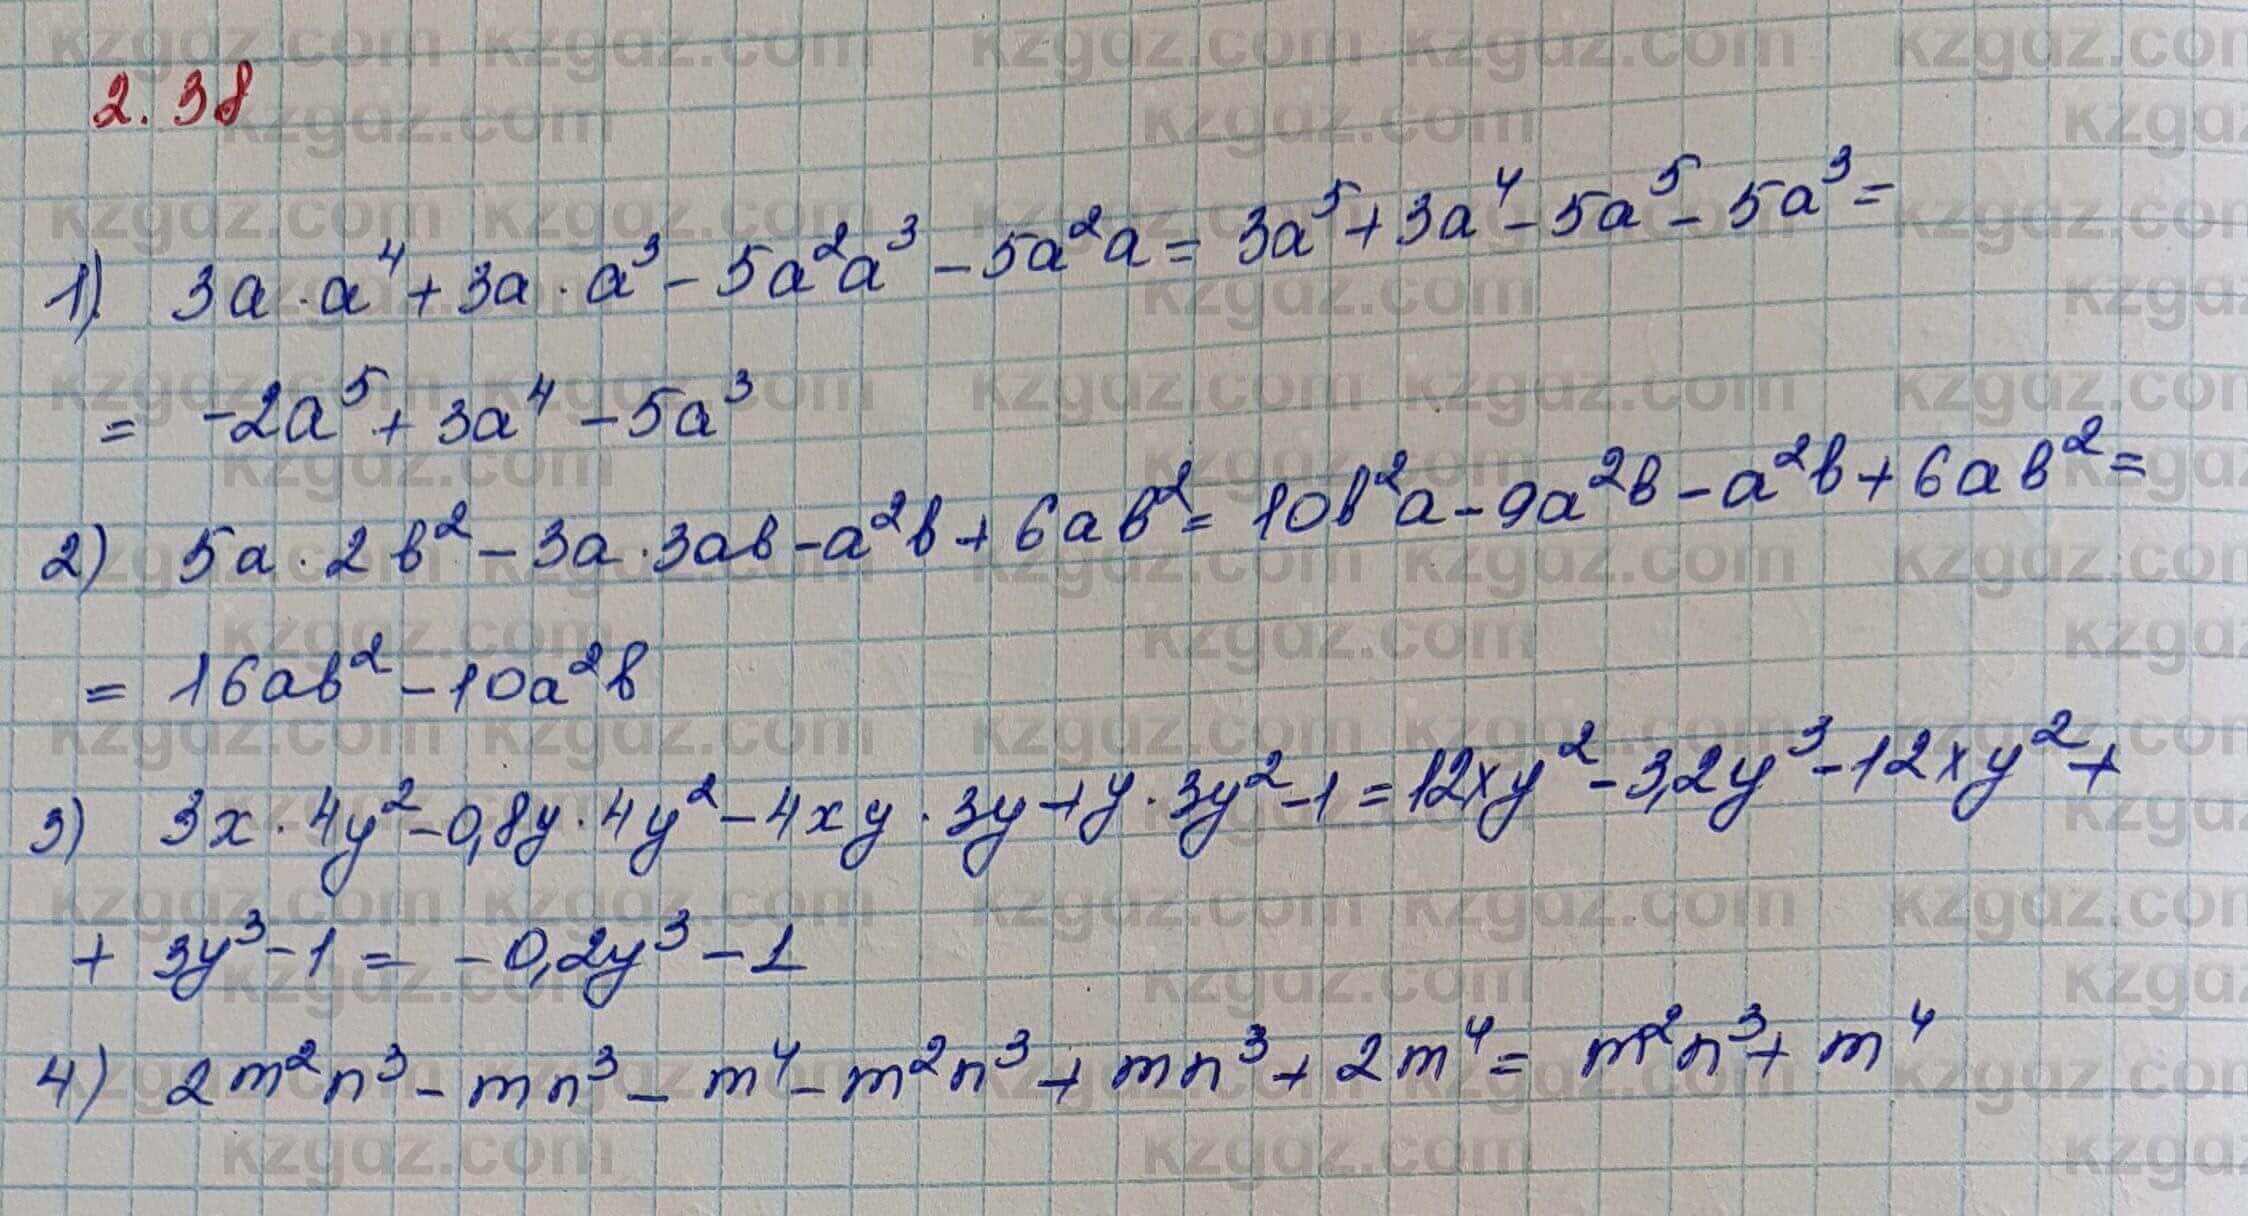 2.38
1) 3a·a⁴+3a·a³-5a²a³-5a²a=3a⁵+3a⁴-5a⁵-5a³=
= -2a⁵+3a⁴-5a³
2) 5a·2b²-3a·3ab-a²b+6ab²=10b²a-9a²b-a²b+6ab²=
= 16ab²-10a²b
3) 3x·4y²-0,8y·4y²-4xy·3y+y·3y²-1=12xy²-3,2y³-12xy²+
+ 3y³-1= -0,2y³-1
4) 2m²n³-mn³-m⁴-m²n³+mn³+2m⁴= m²n³+m⁴
kzgdz.com